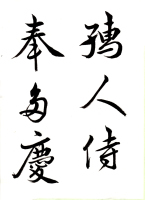 孺人侍
奉多慶